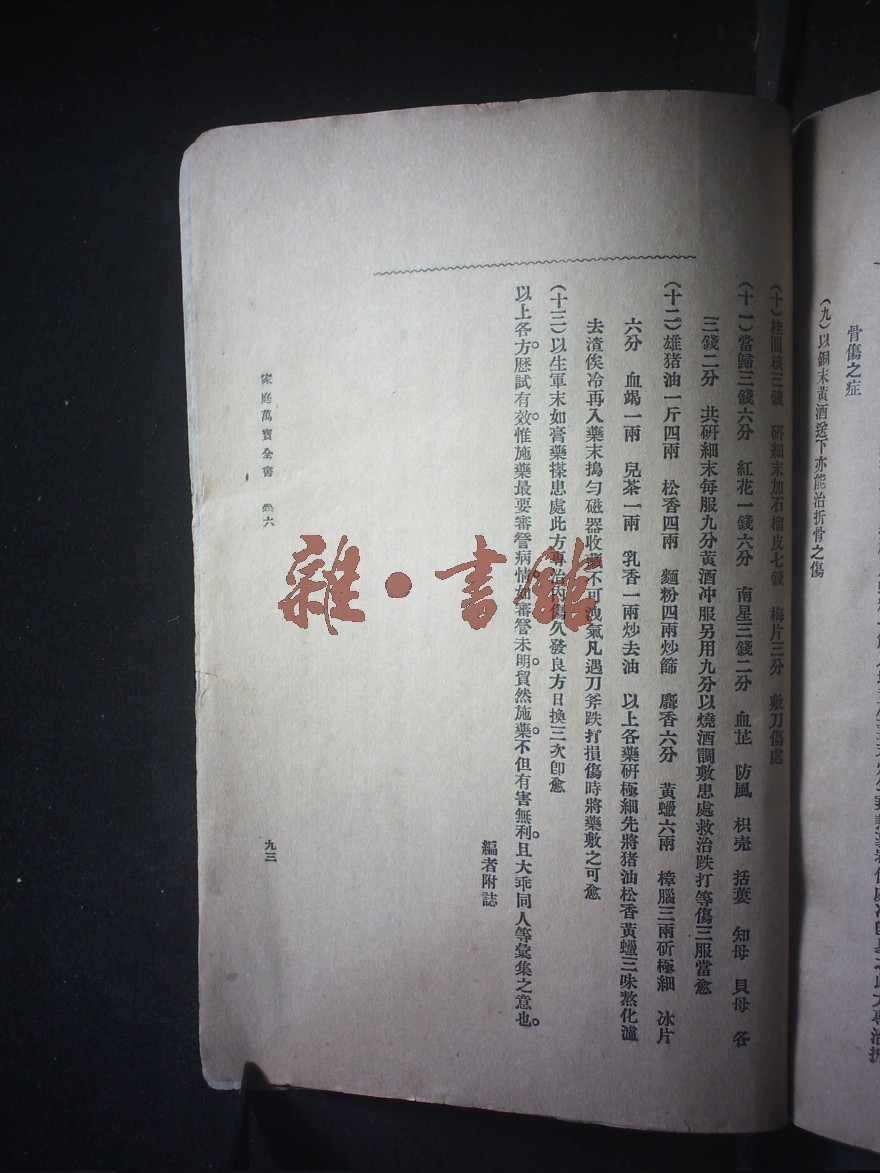 骨傷之症
(九)以銅末黃酒送下亦能治折骨之傷
(十)桂圓核三錢 研細末加石榴皮七錢 梅片三分 敷刀傷處
(十一)當歸三錢六分 紅花一錢六分 南星三錢二分 血茋 防風 枳壳 括蔞 知母 貝母 各
三錢二分 共研細末每服九分黃酒冲服另用九分以燒酒調敷患處救治跌打等傷三服當愈
(十二)雄猪油一斤四兩 松香四兩 麵粉四兩炒篩 麝香六分 黃蠟六兩 樟腦三兩研極細 冰片
六分 血竭一兩 兒茶一兩 乳香一兩炒去油 以上各藥研極細先將猪油松香黃蠟三味熬化濾
去渣俟冷再入藥末搗匀磁器收藏不可洩氣凡遇刀斧跌打損傷時將藥敷之可愈
(十三)以生軍末如膏藥搽患處此方專治內傷久發良方日換三次即愈
以上各方。歷試有效。惟施藥最要審嘗病情。如審嘗未明。貿然施藥。不但有害無利。且大乖同人等彙集之意也。
編者附誌
家庭萬寶全書 卷六
九三
雜·書館